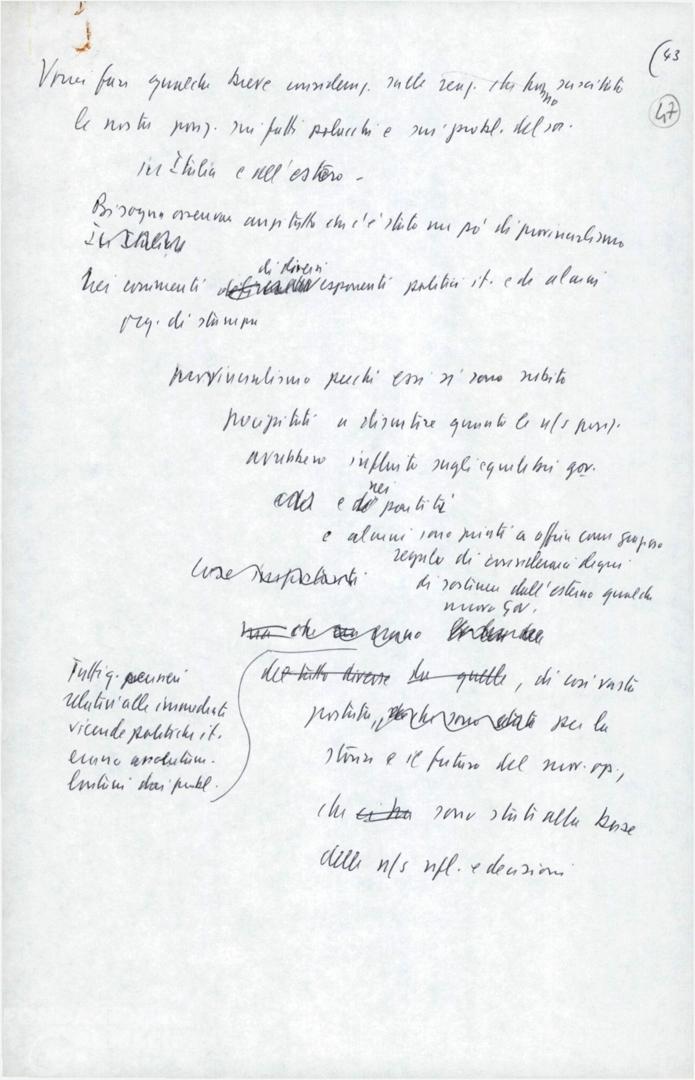 43
47
Vorrei fare qualche breve consideraz. sulle reaz. che hanno suscitato
le nostre posiz. sui fatti polacchi e sui probl. del soc.
in Italia e all'estero -
Bisogna osservare anzitutto che c'è stato un po' di provincialismo
nei commenti di diversi esponenti politici it. e di alcuni
org. di stampa
provincialismo perché essi si sono subito
precipitati a discutere quanto le n/s posiz.
avrebbero influito sugli equilibri gov.
e nei partiti
e alcuni sono giunti a offrirci come generoso
regalo di considerarci degni
di sostenere dall'esterno qualche
nuovo gov.
Cose rispettabili
ma che erano
Tutti q. pensieri
relativi alle immediate
vicende politiche it.
erano assolutam.
lontani dai probl.
del tutto diverse da quelle, di così vasta
portata, per la
storia e il futuro del mov. op.,
che ci ha sono stati alla base
delle n/s rifl. e decisioni